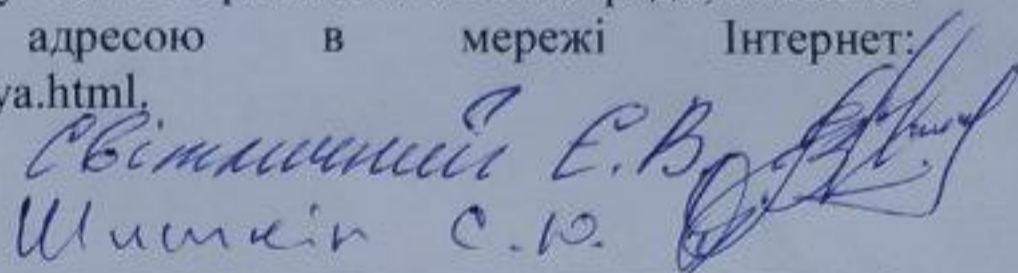 адресою в мережі Інтернет:
ya.html.
Світличний Є.В.
Шишкін С.Ю.